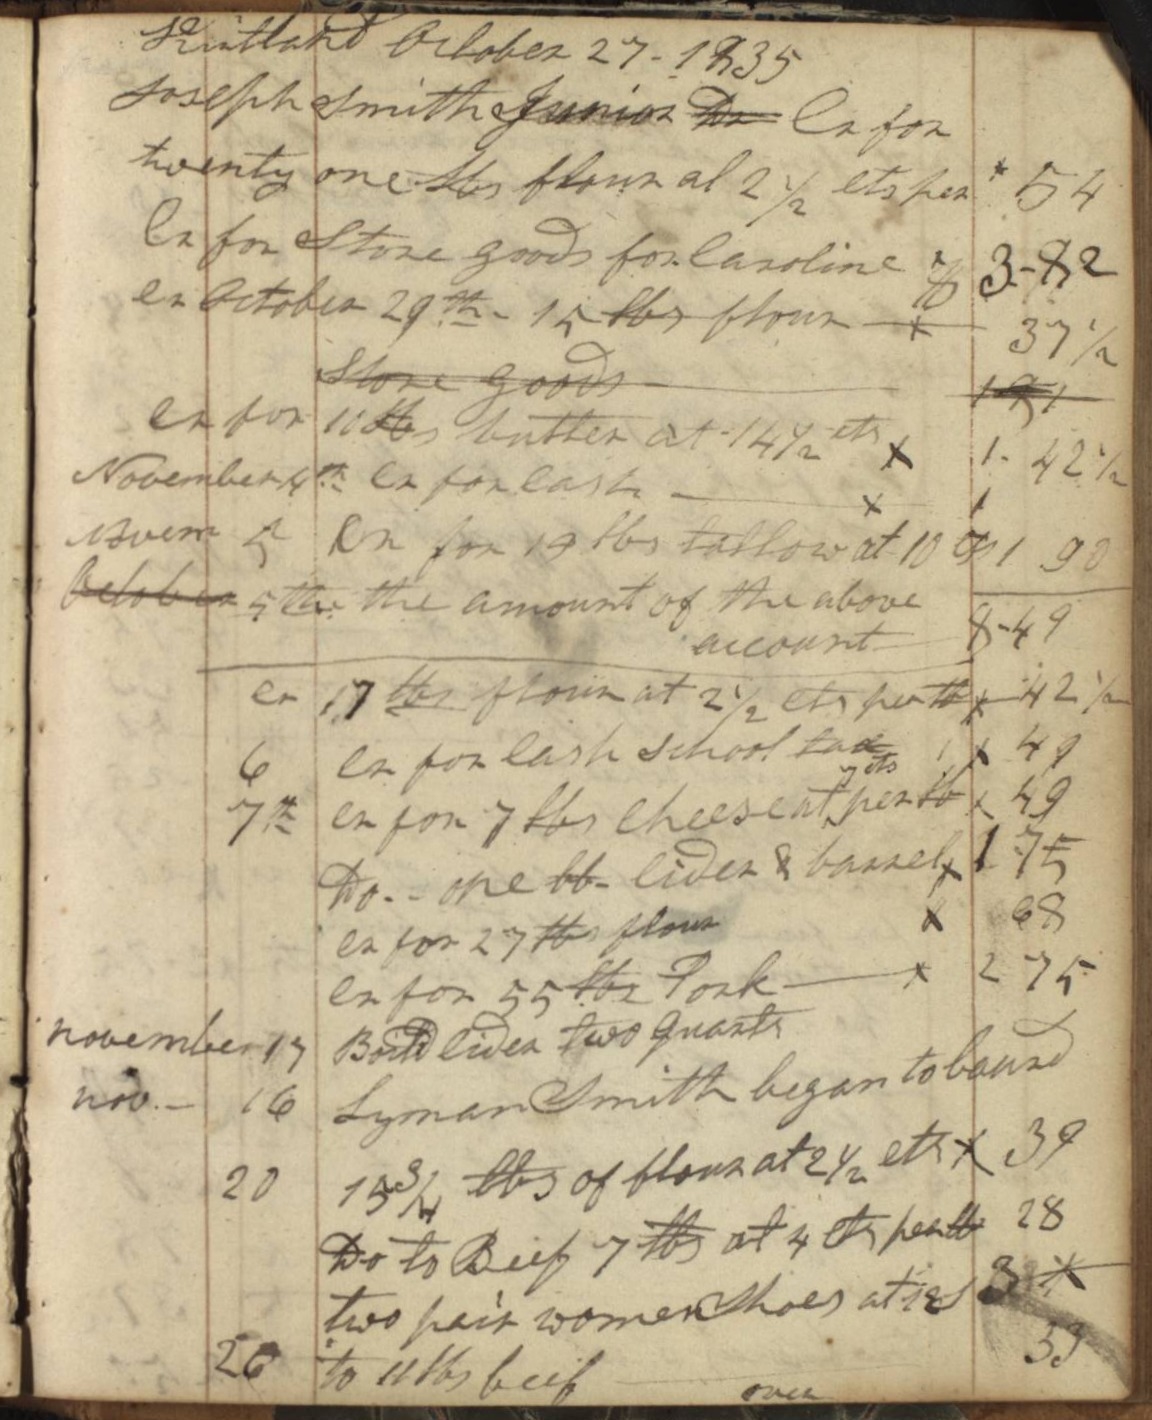 Kirtland October 27 - 1835
Joseph Smith Junior Dr Cr for
twenty one lbs flour at 2 1/2 cts per * 54
Cr for Store goods for Caroline 3-82
Cr October 29th - 15 lbs flour x 37 1/2
Store goods 191
Cr for 10 lbs butter at 14 1/2 cts x 1- 42 1/2
November 4th Cr for Cash x 1
Novem 5 Cr for 19 lbs tallow at 10 cts 1 90
October 5th the amount of the above
account 8-49
Cr 17 lbs flour at 2 1/2 cts per lb x 42 1/2
6 Cr for Cash School tax x 49
7th Cr for 7 lbs Cheese at 7 cts per lb x 49
Do.- one bb- Cider & barrel x 1 75
Cr for 27 lbs flour x 68
Cr for 55 lbs Pork x 2 75
november 17 Boild Cider two quarts
nov.- 16 Lyman Smith began to board
20 15 3/4 lbs of flour at 2 1/2 cts x 39
Do to Beef 7 lbs at 4 cts per lb 28
two pair women Shoes at 12s 3 x
26 to 11 lbs beef 33
over